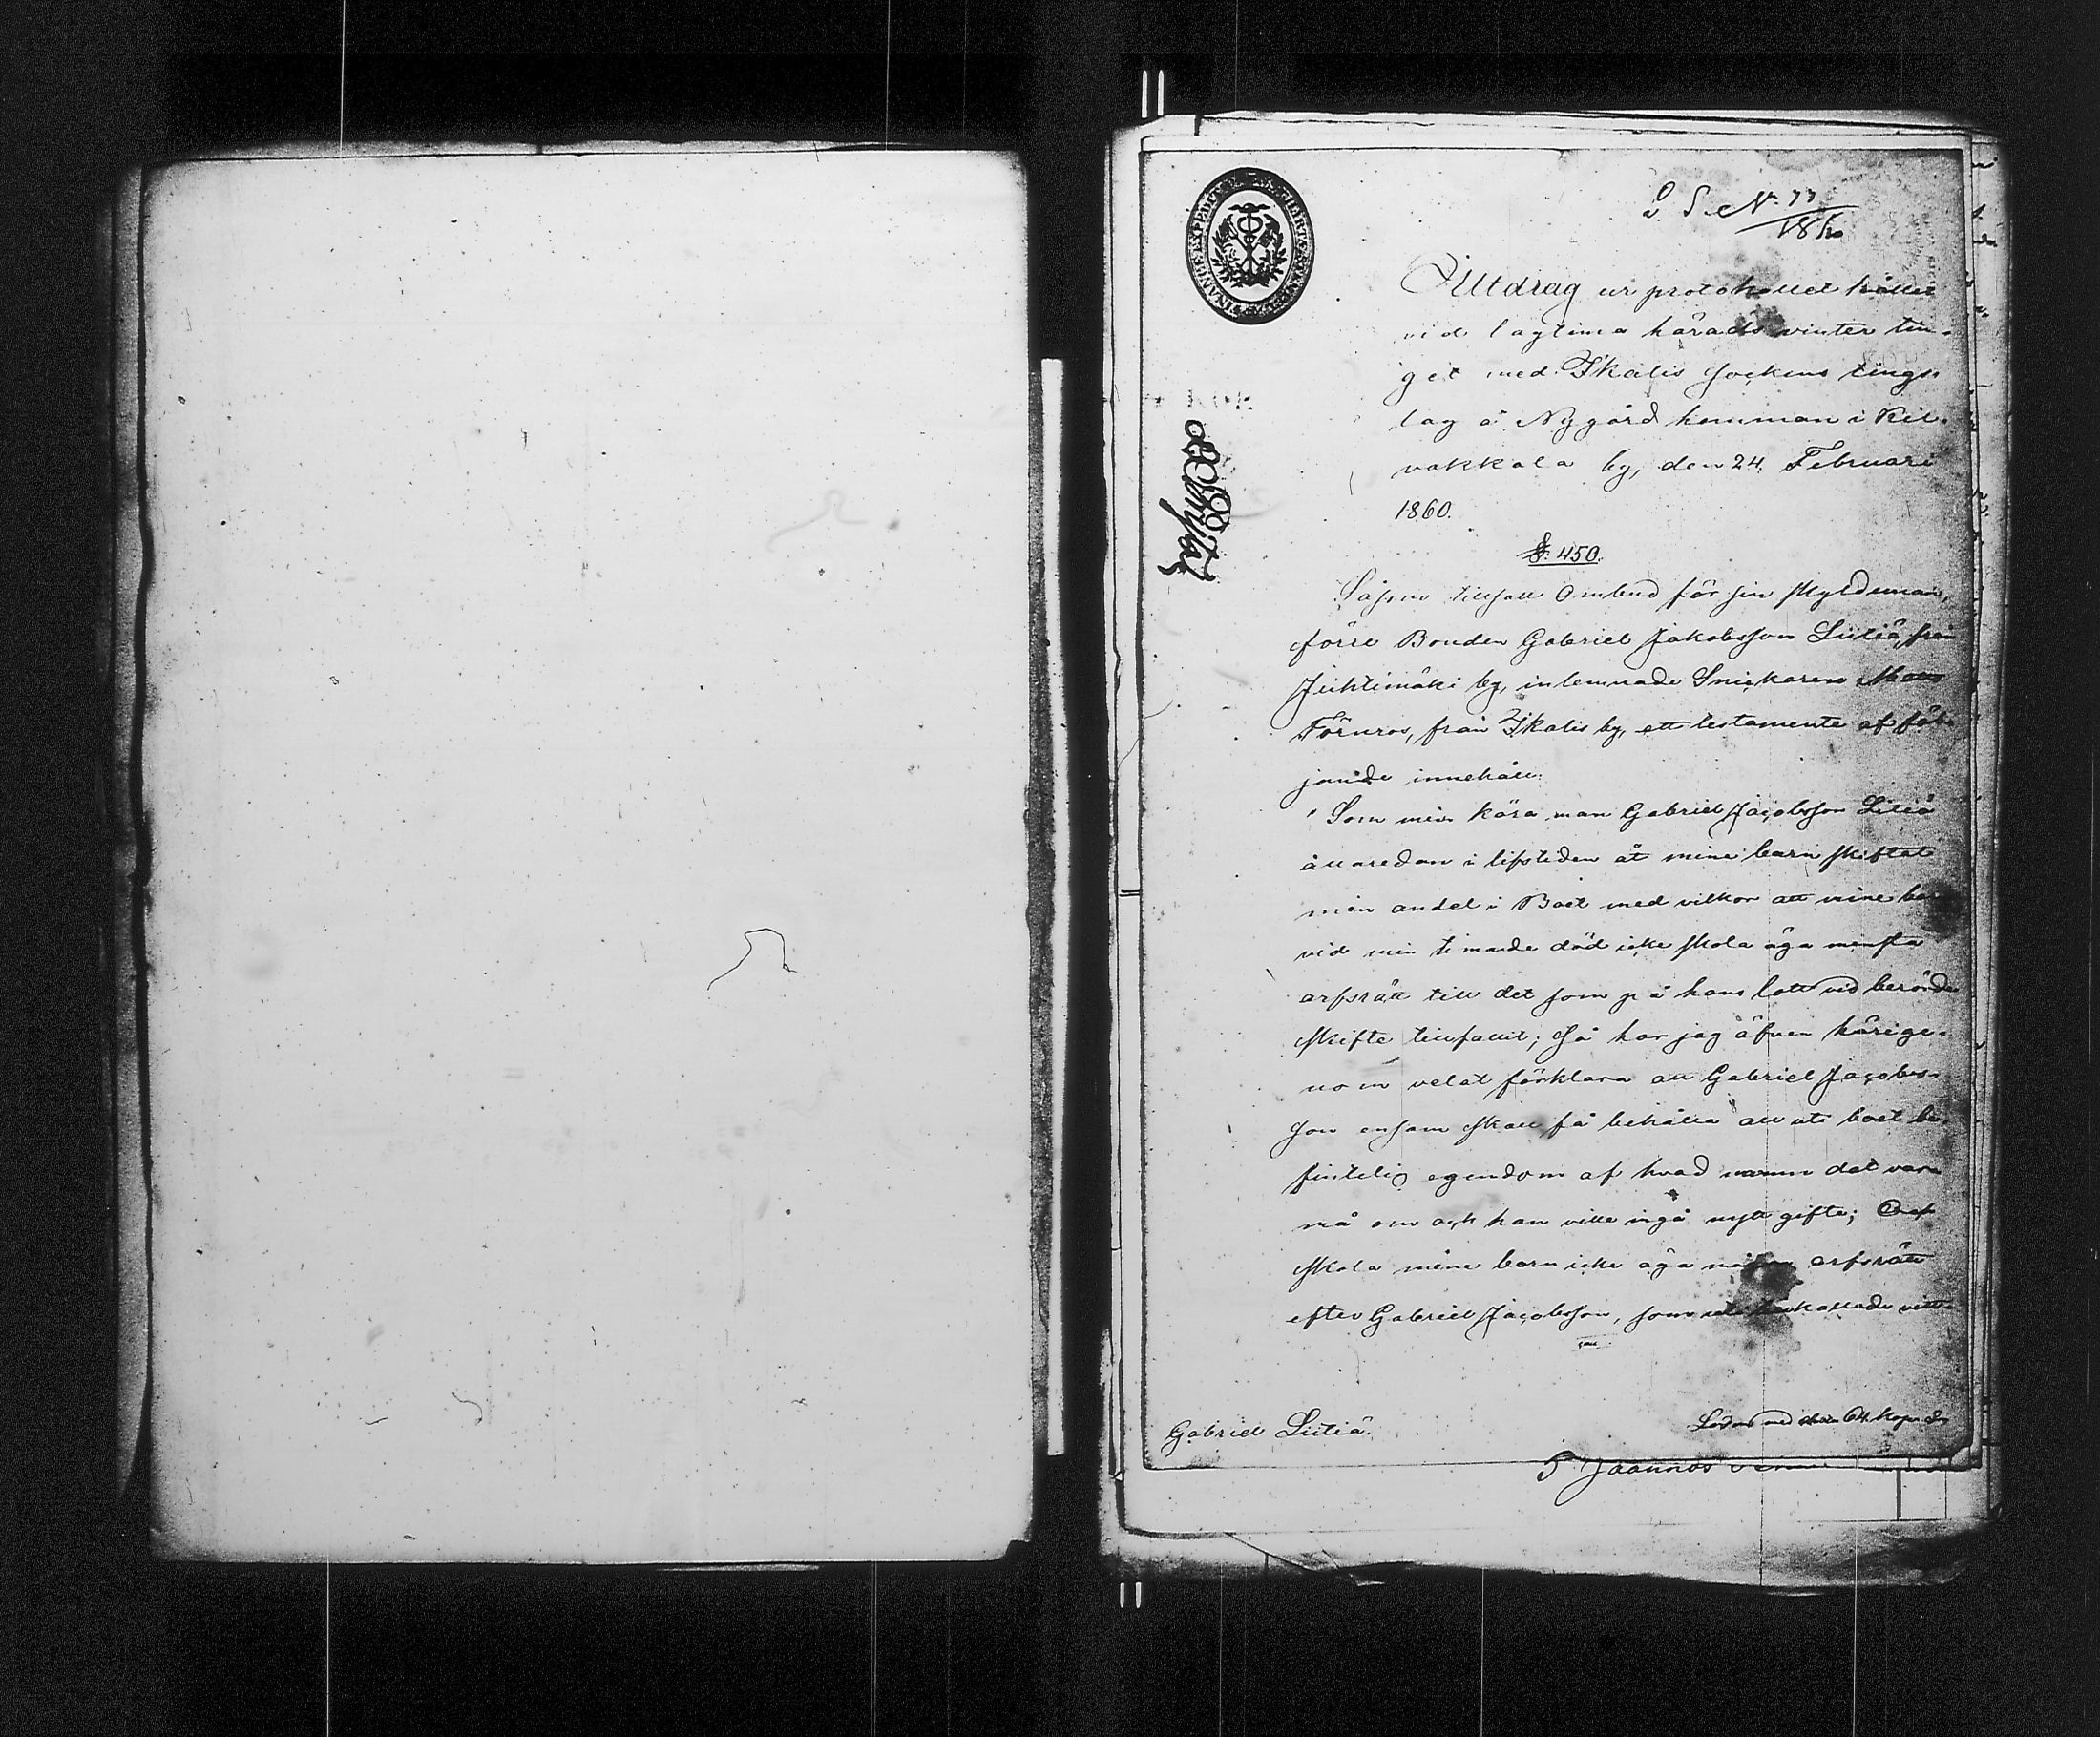 L. S. No. 77
1860
Utdrag ur protokollet hållet
vid lagtima härads vinter tin-
get med Ikalis Sockens tings-
lag å Nygård hemman i Kil-
vakkala by, den 24 Februari
1860.
§. 450.
Såsom tillsatt Ombud för sin Myldeman,
förre Bonden Gabriel Jakobsson Liitiä, från
Juhtimäki by, inlemnade Snickaren
Förnros, från Ikalis by, ett testamente af föl-
jande innehåll:
"Som min kära man Gabriel Jacobsson Litiä
allaredan i lifstiden åt mine barn skiftat
min andel i Boet med vilkor att mine barn
vid min timade död icke skola äga minsta
arfsrätt till det som på hans lott vid berörde
skifte tillfallit; Så har jag äfven härige-
nom velat förklara att Gabriel Jacobs-
son ensam skall få behålla all uti boet be-
fintelig egendom af hvad namn det vara
må om och han ville ingå nytt gifte;
skola mine barn icke äga någon arfsrätt
efter Gabriel Jacobsson, som
Gabriel Liitiä.
Lösen med 64 kop.